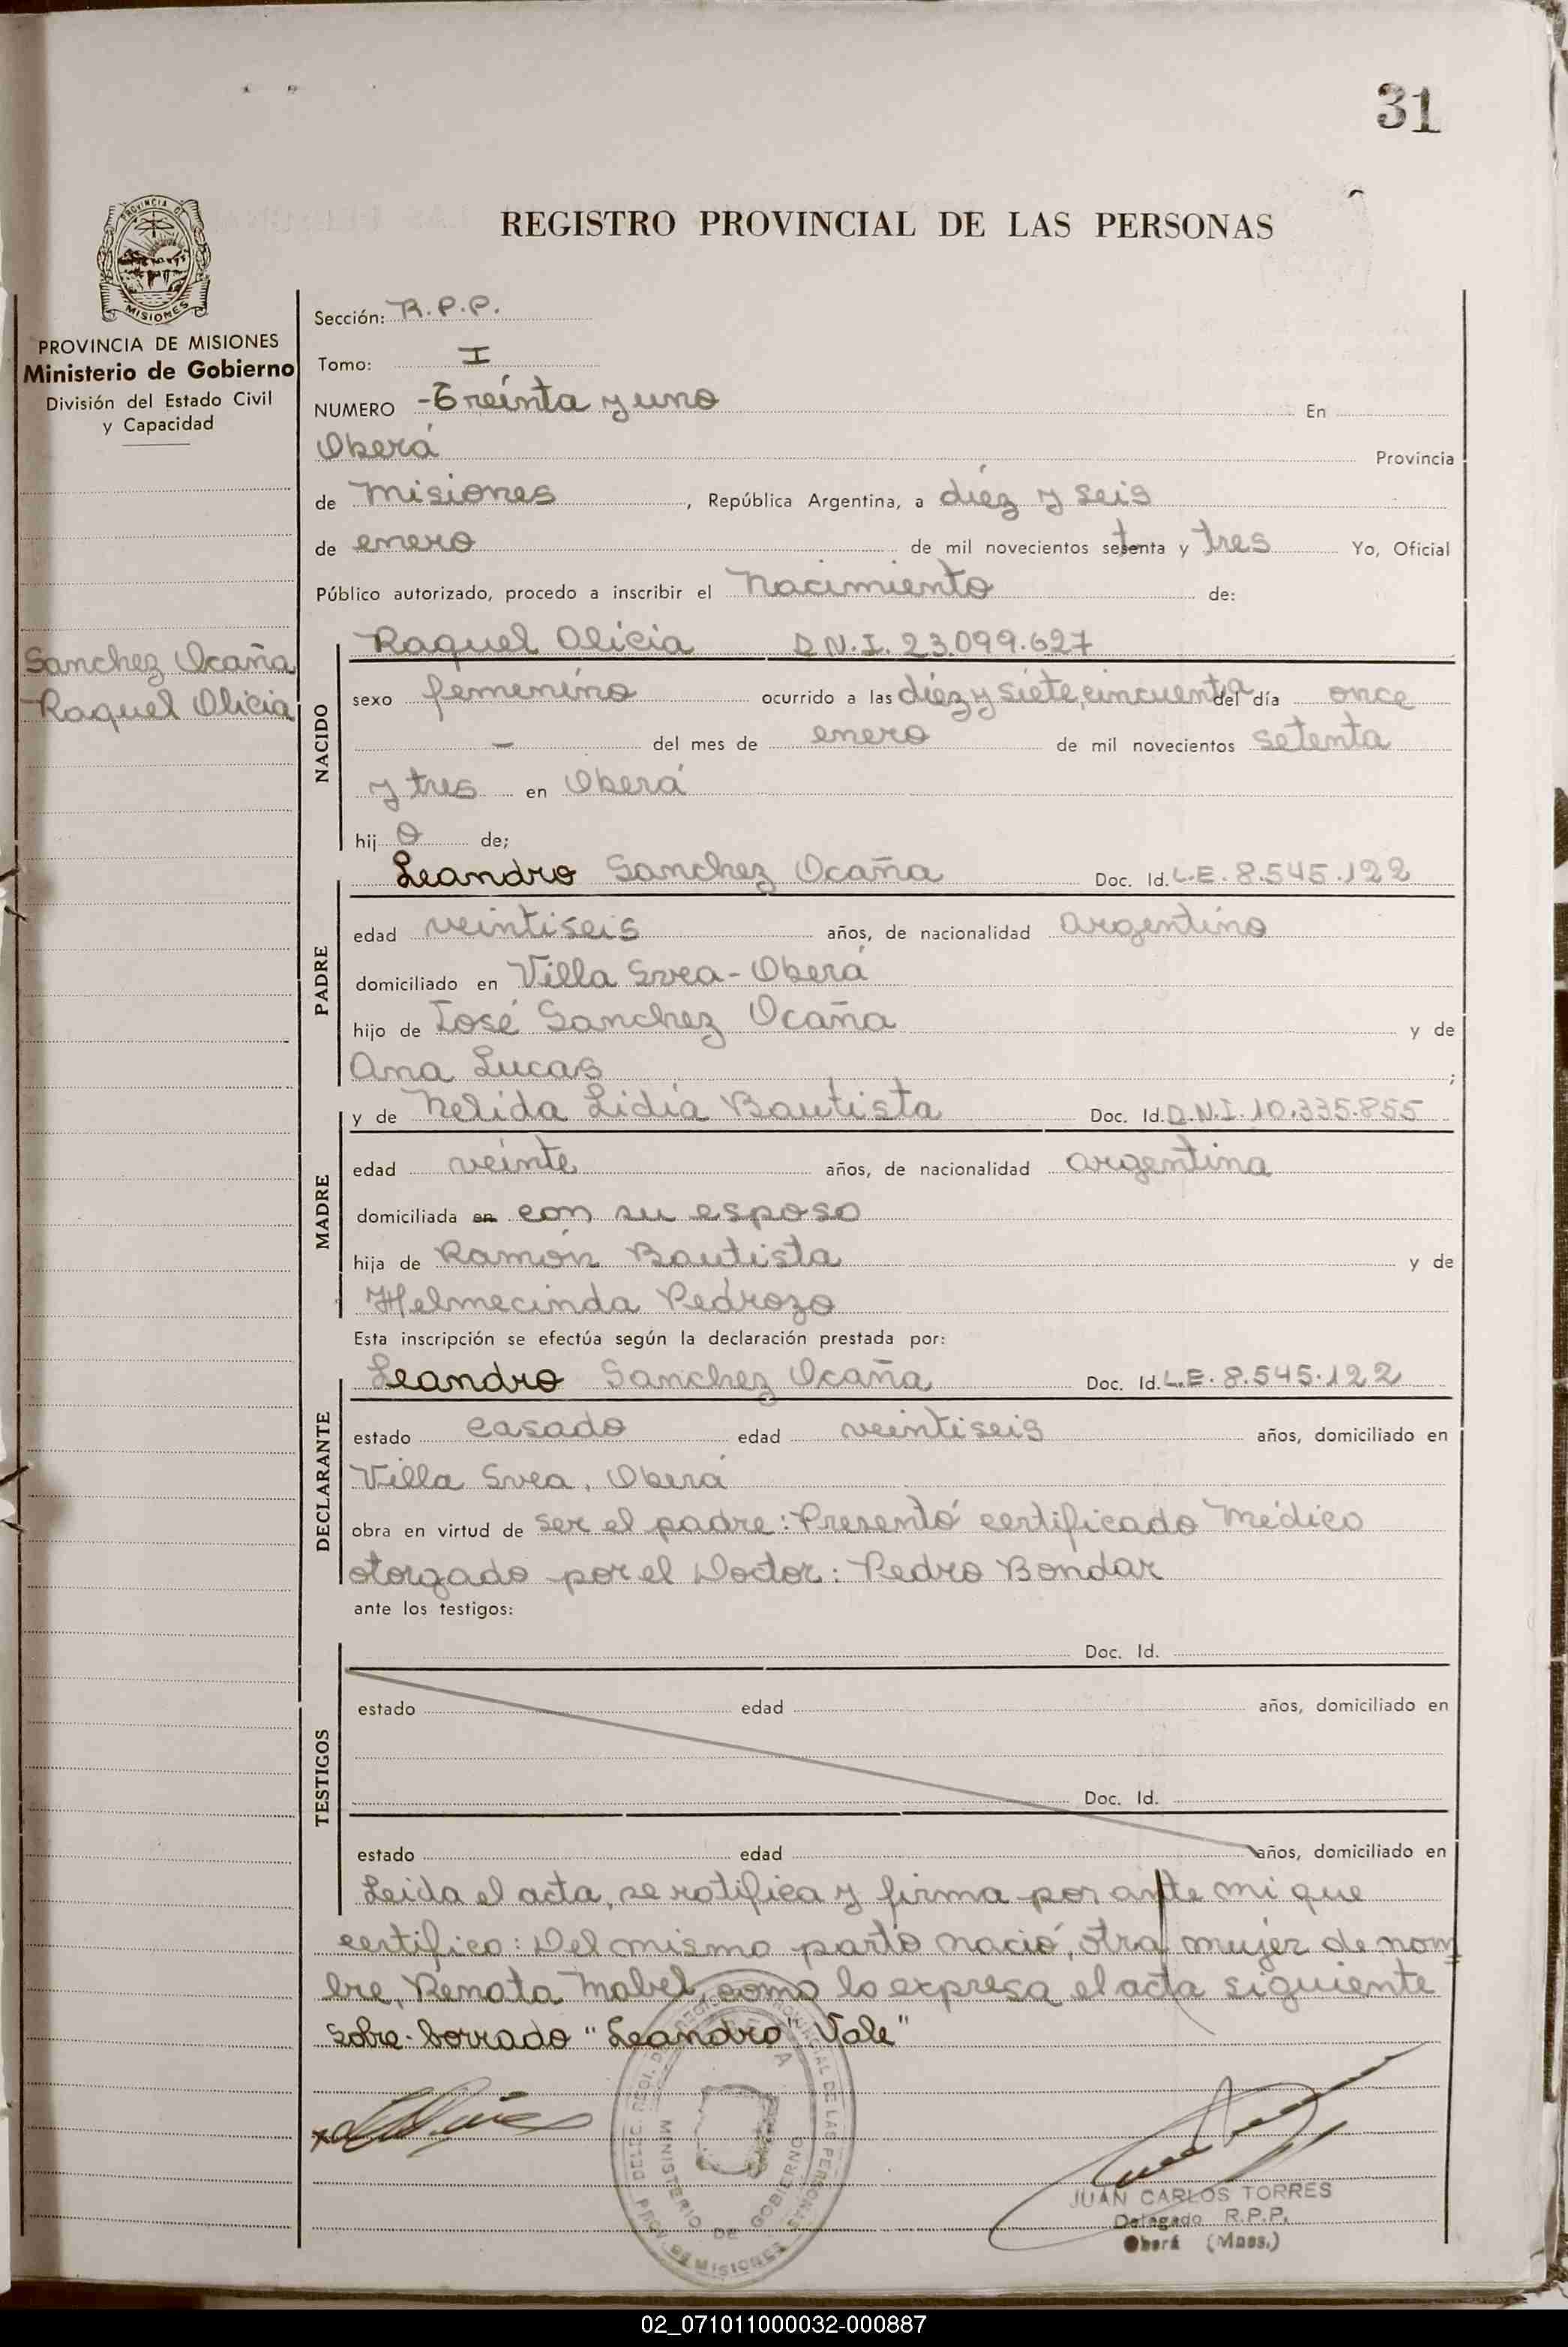 31
REGISTRO PROVINCIAL DE LAS PERSONAS
PROVINCIA DE
MISIONES
PROVINCIA DE MISIONES
Ministerio de Gobierno
División del Estado Civil
y Capacidad
Sanchez Ocaña
Raquel Alicia
Sección: R.P.P.
Tomo: I
NUMERO -Treinta y uno En
Oberá Provincia
de Misiones, República Argentina, a diéz y seis
de enero de mil novecientos setenta y tres Yo, Oficial
Público autorizado, procedo a inscribir el Nacimiento de:
NACIDO
Raquel Alicia D.N.I. 23.099.627
sexo femenino ocurrido a las diéz y siete, cincuenta del día once
- del mes de enero de mil novecientos setenta
y tres en Oberá
hij a de;
PADRE
Leandro Sanchez Ocaña Doc. Id. L.E. 8.545.122
edad veintiseis años, de nacionalidad argentino
domiciliado en Villa Svea-Oberá
hijo de José Sanchez Ocaña y de
Ana Lucas;
MADRE
y de Nelida Lidia Bautista Doc. Id. D.N.I. 10.335.855
edad veinte años, de nacionalidad argentina
domiciliada en con su esposo
hija de Ramón Bautista y de
Helmecinda Pedrozo
Esta inscripción se efectúa según la declaración prestada por:
DECLARANTE
Leandro Sanchez Ocaña Doc. Id. L.E. 8.545.122
estado casado edad veintiseis años, domiciliado en
Villa Svea, Oberá
obra en virtud de ser el padre: Presentó certificado Médico
otorgado por el Doctor: Pedro Bondar
ante los testigos:
TESTIGOS
Doc. Id.
estado edad años, domiciliado en
Doc. Id.
estado edad años, domiciliado en
Leida el acta, se ratifica y firma por ante mi que
certifico: Del mismo parto nació, otra mujer de nom
bre, Renata Mabel, como lo expresa el acta siguiente
Sobre-borrado "Leandro" Vale"
MINISTERIO DE GOBIERNO
PROV. DE MISIONES
JUAN CARLOS TORRES
Delegado R.P.P.
Oberá (Mnes.)
02_071011000032-000887